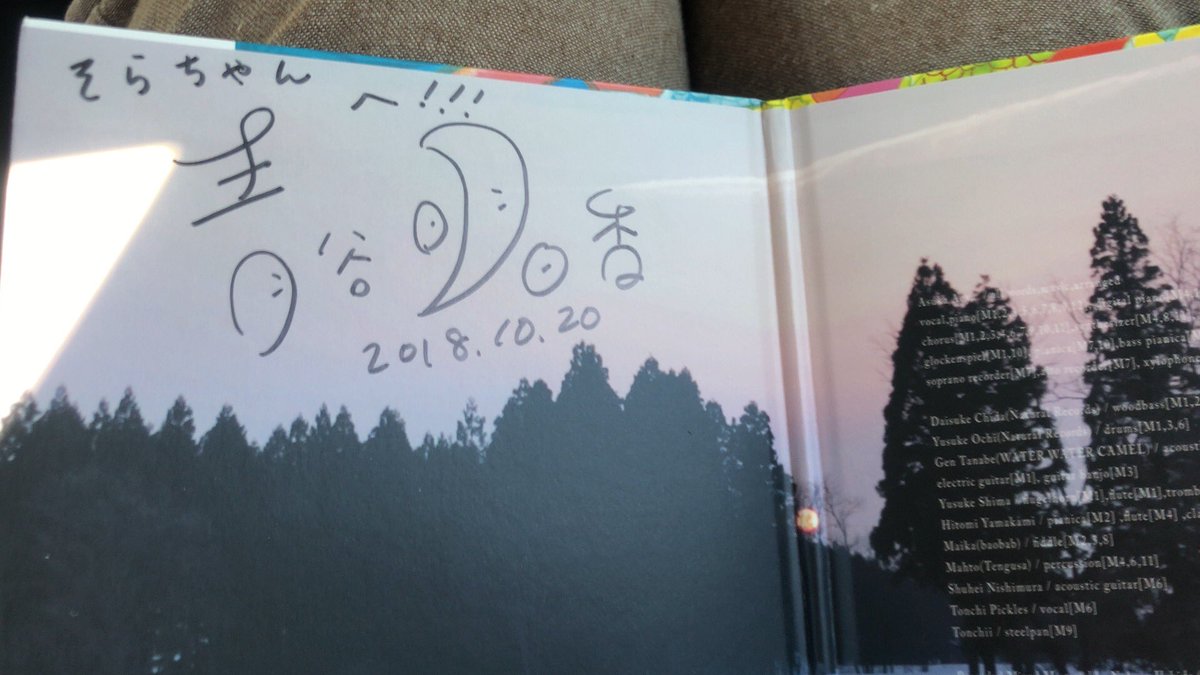 そらちゃんへ!!!
青谷明日香
2018.10.20
vocal,piano[M1,2
chorus[M1,2,3,4,6
glockenspiel[M1,10]
bass pianica
soprano recorder[M7]
xylophone
Daisuke Chida(Natural Records) / woodbass[M1,2
Yusuke Ochi(Natural Records) / drums[M1,3,6]
Gen Tanabe(WATER WATER CAMEL) / acoustic
electric guitar[M1], guitar banjo[M3]
Yusuke Shima [M1],flute[M1],trom
Hitomi Yamakami / pianica[M2] ,flute[M4] ,cla
Maika(baobab) / fiddle[M2,3,8]
Mahto(Tengusa) / percussion[M4,6,11]
Shuhei Nishimura / acoustic guitar[M6]
Tonchi Pickles / vocal[M6]
Tonchii / steelpan[M9]